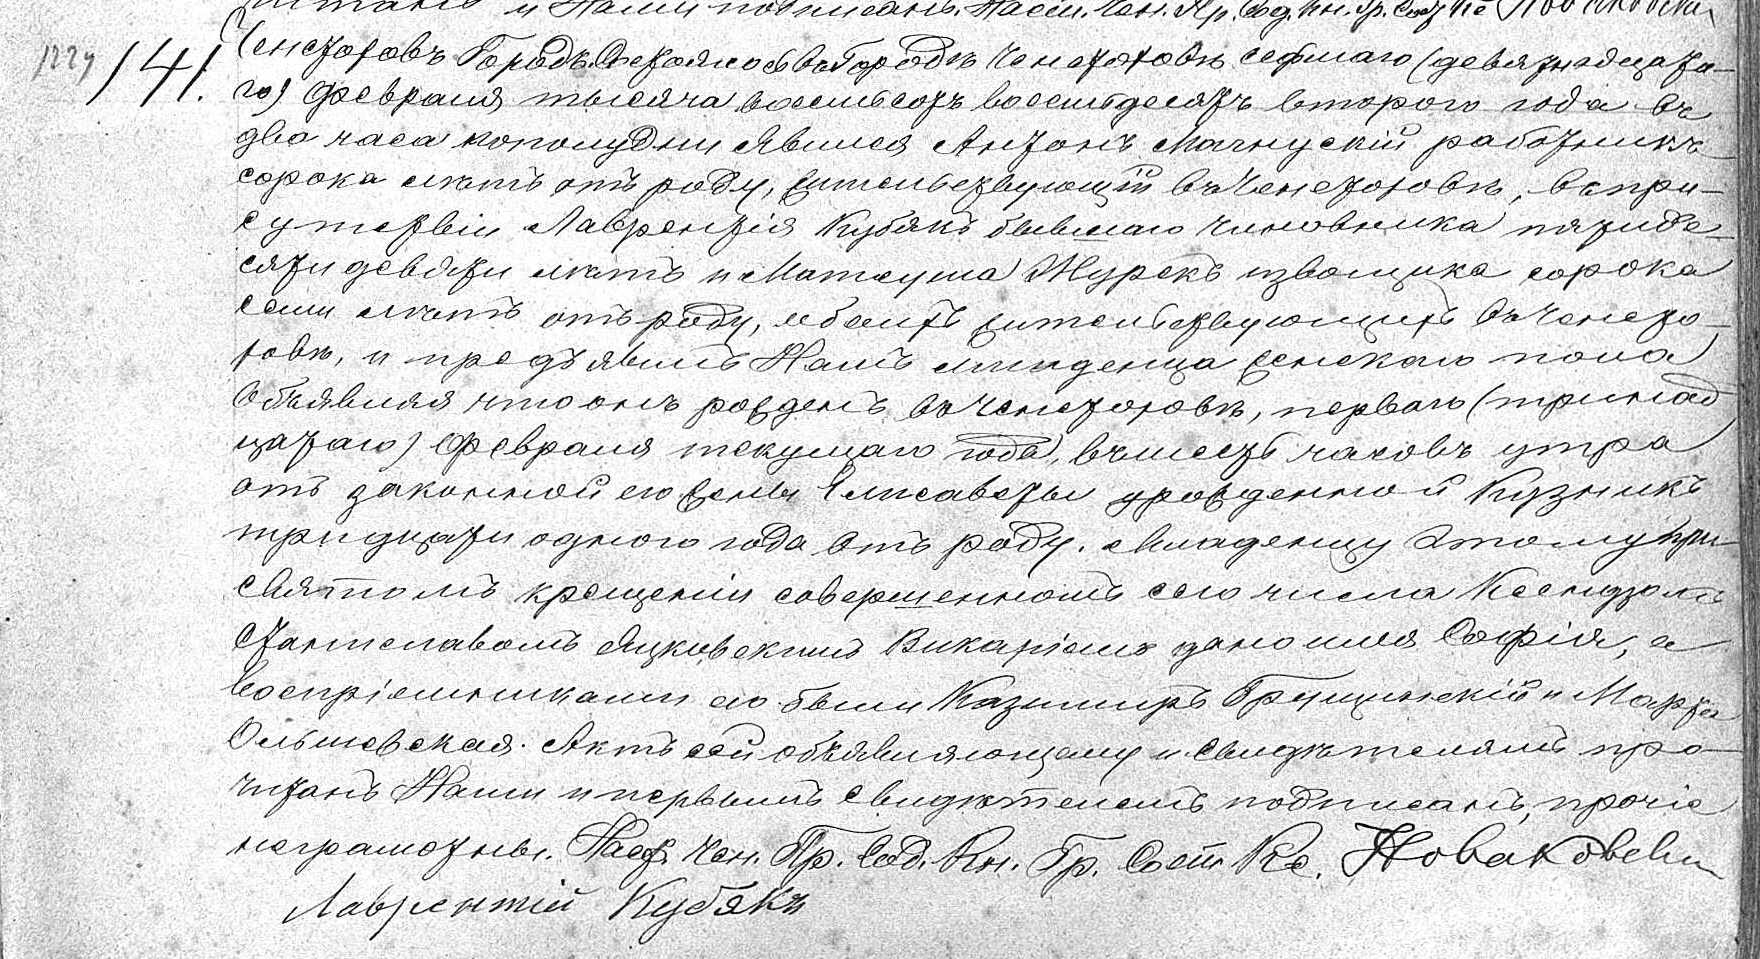 и Нами подписанъ. Наст. Чен. Пр. Сод. Кн. Гр. Сост. Кс. Новаковски
1224 141. Ченстоховъ Городъ. Состоялось въ Городѣ Ченстоховѣ седмаго (девятнадцата-
го) Февраля тысяча восемьсотъ восемьдесятъ второго года въ
два часа пополудни явился Антонъ Мачнускій работникъ
сорока лѣтъ отъ роду, жительствующій въ Ченстоховѣ, въ при-
сутствіи Лаврентія Кубякъ бывшаго чиновника пятиде-
сяти девяти лѣтъ и Матеуша Журекъ извощика сорока
семи лѣтъ отъ роду, обоихъ жительствующихъ въ Ченсто-
ховѣ, и предъявилъ Намъ младенца женскаго пола
объявляя что онъ рожденъ въ Ченстоховѣ, перваго (тринад
цатаго) Февраля текущаго года, въ шесть часовъ утра
отъ законной его жены Елисаветы урожденной Кузникъ
тридцати одного года отъ роду. Младенцу этому при
святомъ крещеніи совершенномъ сего числа Ксендзомъ
Станиславомъ Яцковскимъ Викаріемъ дано имя Софія, а
воспріемниками его были Казимиръ Грущинскій и Марта
Ольшевская. Актъ сей объявляющему и свидѣтелямъ про-
читанъ Нами и первымъ свидѣтелемъ подписанъ, прочіе
неграмотны. Наст. Чен. Пр. Сод. Кн. Гр. Сост. Кс. Новаковски
Лаврентій Кубякъ